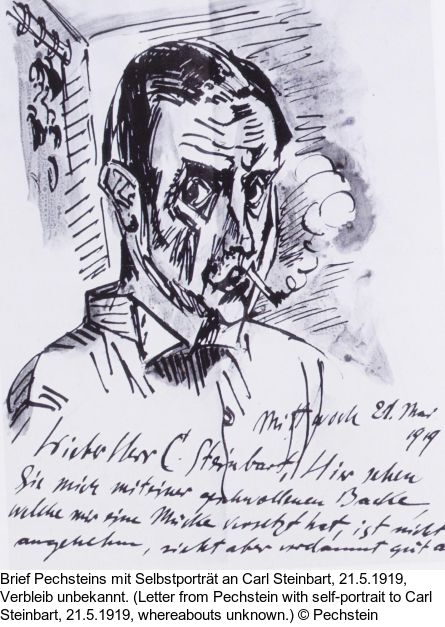 Mittwoch 21. Mai
1919
Lieber Herr C. Steinbart, Hier sehen
Sie mich mit einer geschwollenen Backe,
welche mir eine Mücke versetzt hat, ist nicht
angenehm, sieht aber verdammt gut a
Brief Pechsteins mit Selbstporträt an Carl Steinbart, 21.5.1919,
Verbleib unbekannt. (Letter from Pechstein with self-portrait to Carl
Steinbart, 21.5.1919, whereabouts unknown.) © Pechstein